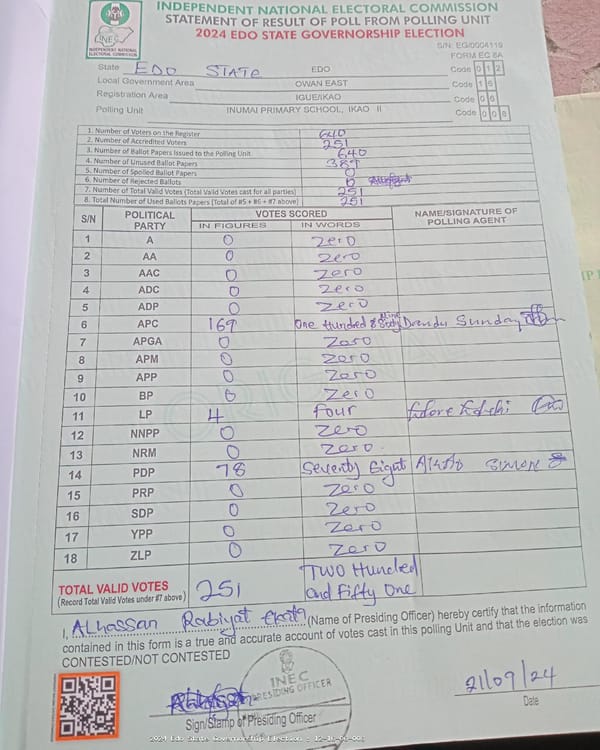 INDEPENDENT NATIONAL ELECTORAL COMMISSION
STATEMENT OF RESULT OF POLL FROM POLLING UNIT
2024 EDO STATE GOVERNORSHIP ELECTION
INEC
INDEPENDENT NATIONAL ELECTORAL COMMISSION
S/N: EG/0004119
FORM EC 8A
State EDO STATE EDO Code 0 1 2
Local Government Area OWAN EAST Code 1 6
Registration Area IGUE/IKAO Code 0 6
Polling Unit INUMAI PRIMARY SCHOOL, IKAO II Code 0 0 8
1. Number of Voters on the Register 640
2. Number of Accredited Voters 251
3. Number of Ballot Papers Issued to the Polling Unit 640
4. Number of Unused Ballot Papers 389
5. Number of Spoiled Ballot Papers 0
6. Number of Rejected Ballots 0
7. Number of Total Valid Votes (Total Valid Votes cast for all parties) 251
8. Total Number of Used Ballots Papers (Total of #5 + #6 + #7 above) 251
S/N POLITICAL PARTY VOTES SCORED NAME/SIGNATURE OF POLLING AGENT
IN FIGURES IN WORDS
1 A 0 Zero
2 AA 0 Zero
3 AAC 0 Zero
4 ADC 0 Zero
5 ADP 0 Zero
6 APC 169 One Hundred & Sixty Nine Sunday
7 APGA 0 Zero
8 APM 0 Zero
9 APP 0 Zero
10 BP 0 Zero
11 LP 4 Four
12 NNPP 0 Zero
13 NRM 0 Zero
14 PDP 78 Seventy Eight Simon
15 PRP 0 Zero
16 SDP 0 Zero
17 YPP 0 Zero
18 ZLP 0 Zero
TOTAL VALID VOTES 251 TWO Hundred
(Record Total Valid Votes under #7 above) and Fifty One
I, ALHassan Rabiyat (Name of Presiding Officer) hereby certify that the information
contained in this form is a true and accurate account of votes cast in this polling Unit and that the election was
CONTESTED/NOT CONTESTED
INEC
PRESIDING OFFICER
21/09/24
Sign/Stamp of Presiding Officer Date
ORIGINAL